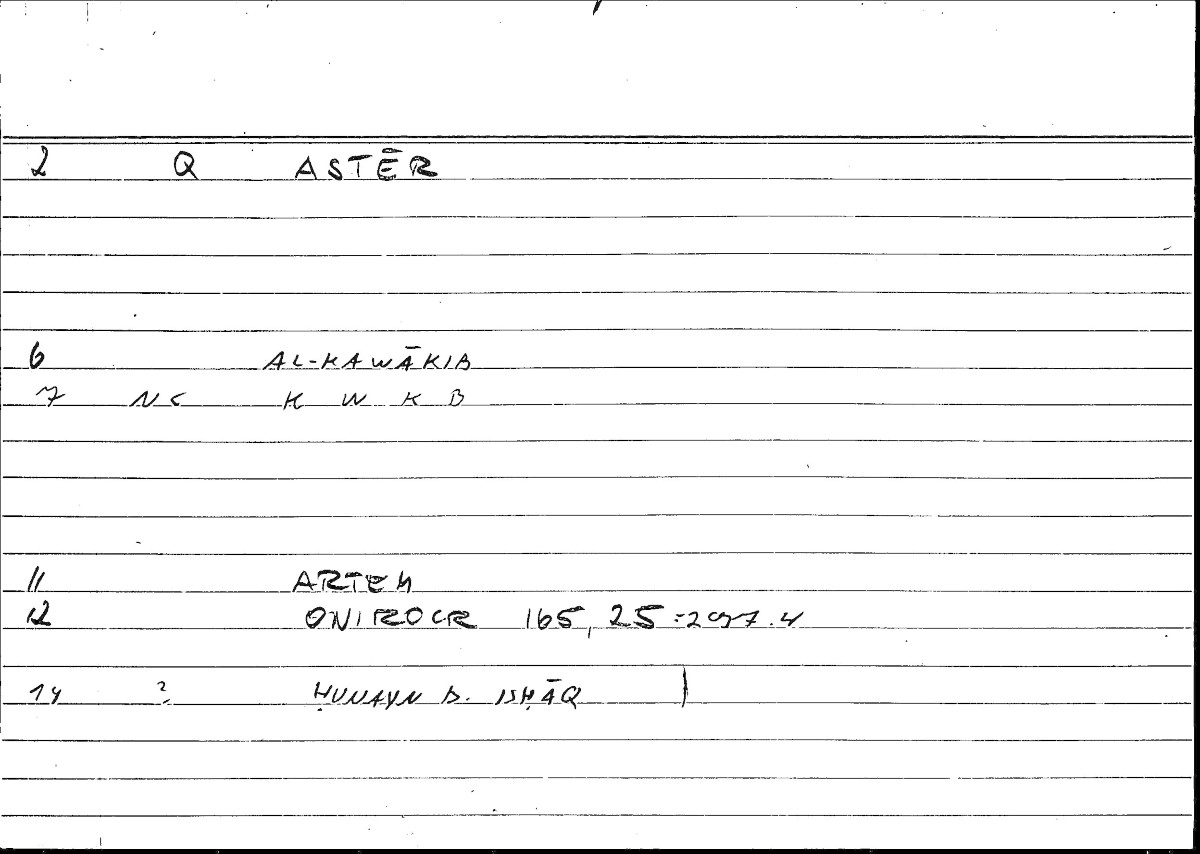 2 Q ASTĒR
6 AL-KAWĀKIB
7 NC K W K B
11 ARTEM
12 ONIROCR 165, 25 = 297.4
14 ? ḤUNAYN B. ISḤĀQ